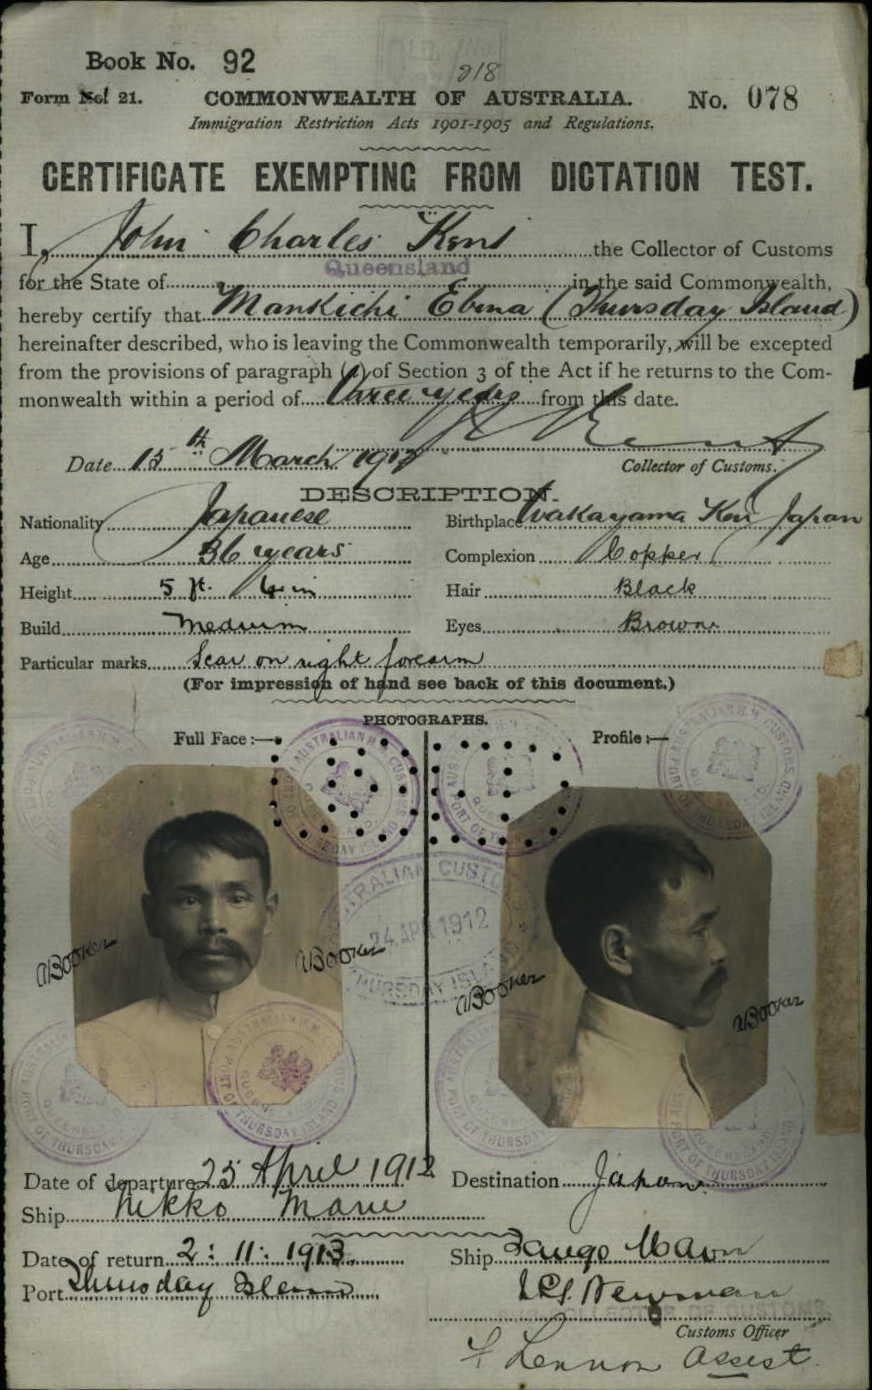 Book No. 92
218
Form No. 21. COMMONWEALTH OF AUSTRALIA. No. 078
Immigration Restriction Acts 1901-1905 and Regulations.
CERTIFICATE EXEMPTING FROM DICTATION TEST.
I, John Charles Kent the Collector of Customs
for the State of Queensland in the said Commonwealth,
hereby certify that Mankichi Ebina (Thursday Island)
hereinafter described, who is leaving the Commonwealth temporarily, will be excepted
from the provisions of paragraph (a) of Section 3 of the Act if he returns to the Com-
monwealth within a period of Three years from this date.
Date 15th March 1912
Collector of Customs.
DESCRIPTION.
Nationality Japanese Birthplace Wakayama Ken Japan
Age 36 years Complexion Copper
Height 5 ft. 4 in Hair Black
Build Medium Eyes Brown
Particular marks Scar on right forearm
(For impression of hand see back of this document.)
PHOTOGRAPHS.
Full Face :— Profile :—
24 APR 1912
THURSDAY ISLAND
Date of departure 25 April 1912 Destination Japan
Ship Nikko Maru
Date of return 2: 11: 1913. Ship Tango Maru
Port Thursday Island
Customs Officer
F Lennon Assist.